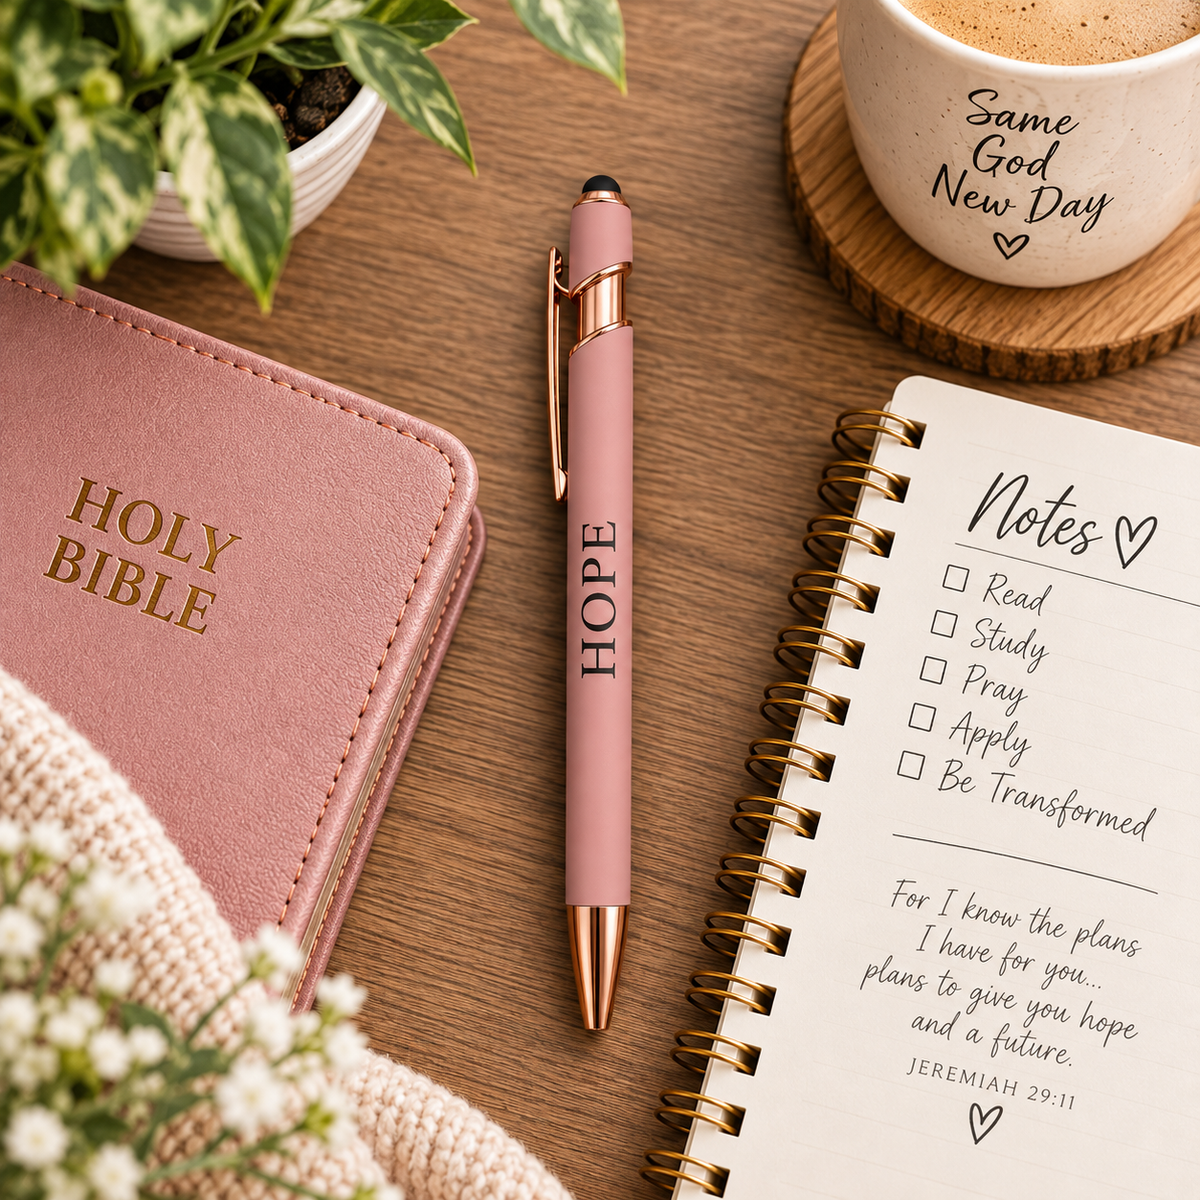 Same
God
New Day
HOLY
BIBLE
HOPE
Notes
Read
Study
Pray
Apply
Be Transformed
For I know the plans
I have for you...
plans to give you hope
and a future.
JEREMIAH 29:11